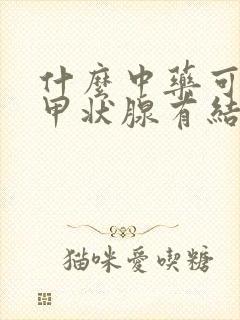 什麼中藥可
甲狀腺有結
猫咪愛喫糖